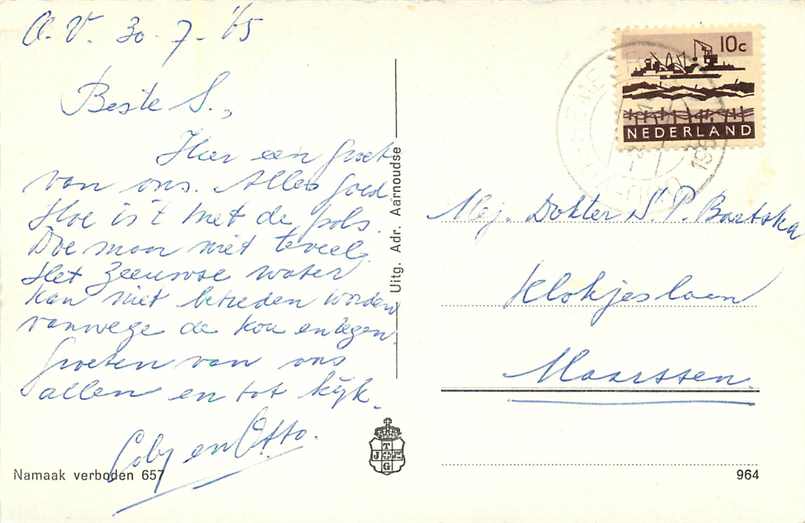 O.V. 30-7-'65
Beste S.,
Hier een groet
van ons. Alles goed.
Hoe is't met de pols.
Doe maar niet teveel.
Het Zeeuwse water
kan niet betreden worden
vanwege de kou en regen.
Groeten van ons
allen en tot kijk.
Coby en Otto.
Namaak verboden 657
Uitg. Adr. Aarnoudse
T
G
10c
NEDERLAND
Mej. Dokter S. P. Bartstra
Klokjeslaan
Maarssen.
964